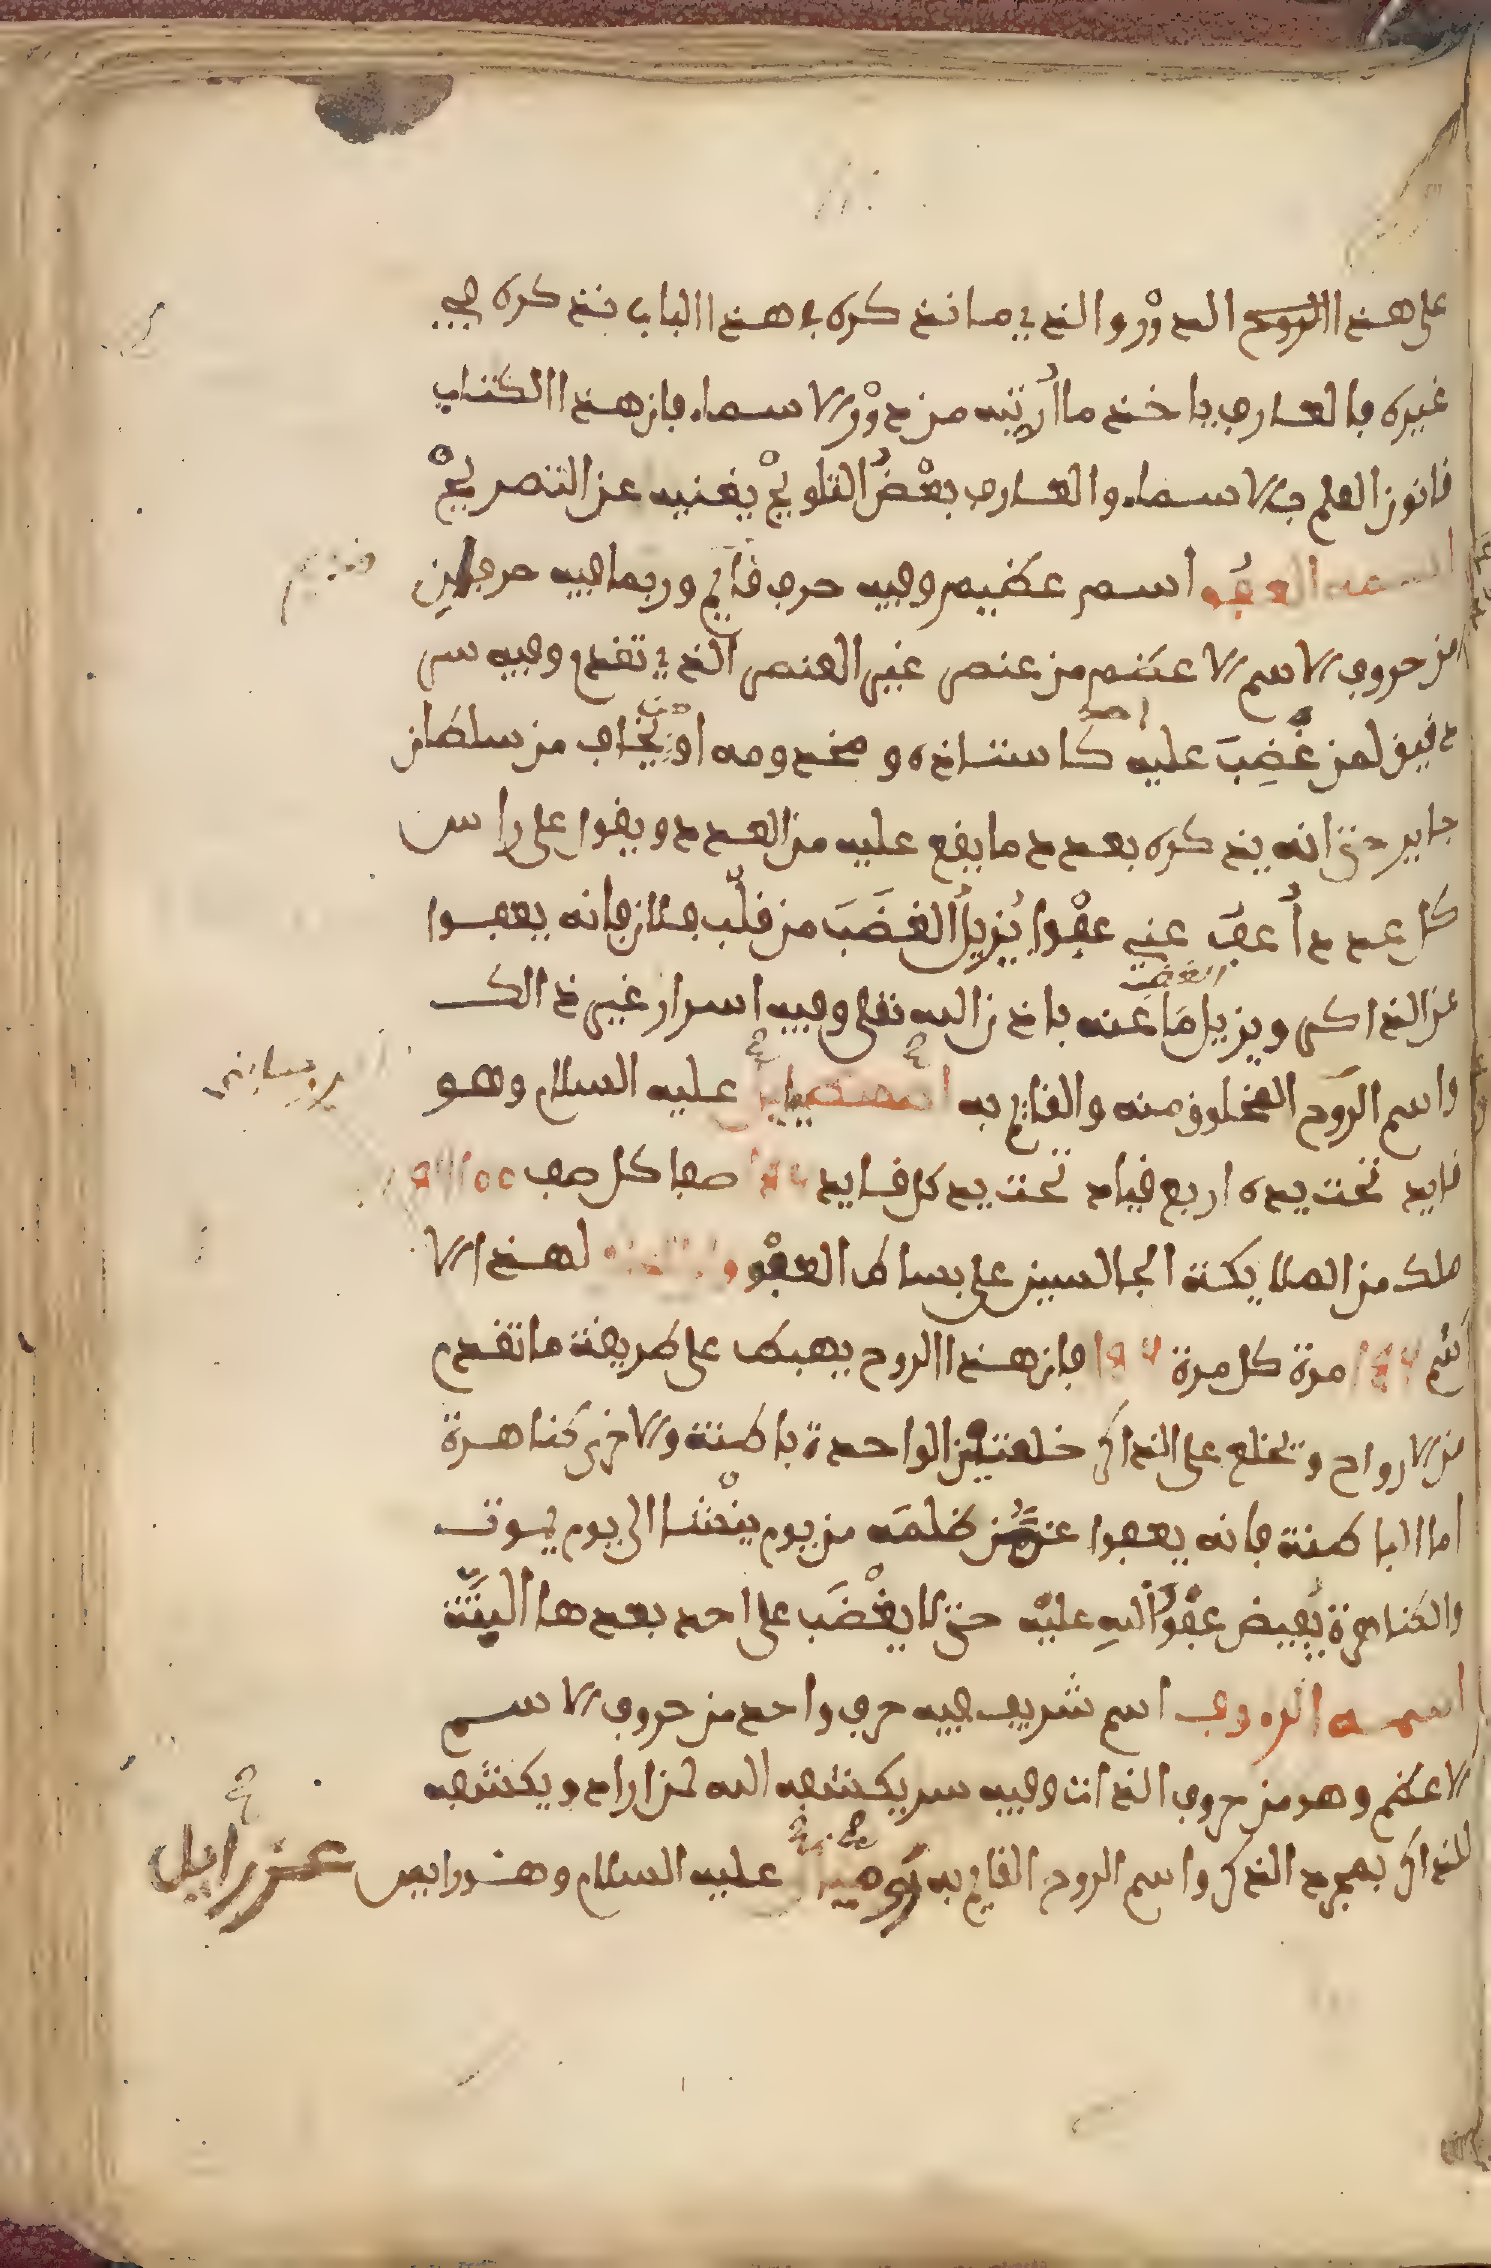 على هذا الروح الدوْر والذي ما نذكره في هذا الباب نذكره في
غيره فالعارف ياخذ ما أرتبه من دوْر الاسماء فان هذا الكتاب
قانون العلم بالاسماء والعارف بعْضُ التلويحْ يغنيه عن التصريحْ
اسمه العفو اسم عظيم وفيه حرف قايم وربما فيه حرفين
من حروف الاسم الاعظم من عنصر غير العنصر الذي تقدم وفيه سر
دقيق لمن غَضِبَ عليه احد كاستاذه ومخدومه اوْ يخاف من سلطان
جاير حتى انه يذكره بعدد ما يقع عليه من العدد ويقول على راس
كل عدد أُعفُ عني عفْوا يُزيلُ الغضَبَ من قلْب فلان فانه يعفوا
عن الذاكر ويزيل مَا عَنه الغضب باذن الله تعلى وفيه اسرار غير ذالك
واسم الروح المخلوق منه والقايم به عليه السلام وهو
قايد تحت يده اربع قياد تحت يد كل قايد صفا كل صف
ملك من الملايكة الجالسين على بساط العفْو لهذا الا
سم مرة كل مرة فان هذا الروح يهبط على طريقة ما تقدم
من الارواح وتخلع على الذاكر خلعتين الواحدة باطنة والاخرى ظاهرة
اما الباطنة فانه يعفوا عن من ظلمَه من يوم ينْشا الى يوم يموت
والظاهرة يُفيض عفْوُ اللهِ عليْه حتى لا يغْضَب على احد بعدها البتَّة
اسمه الرءوف اسم شريف فيه حرف واحد من حروف الاسم
الاعظم وهو من حروف الذات وفيه سر يكشفه الله لمن اراد ويكشفه
للذاكر بمجرد الذكر واسم الروح القايم به عليه السلام وهو
عزرائيل